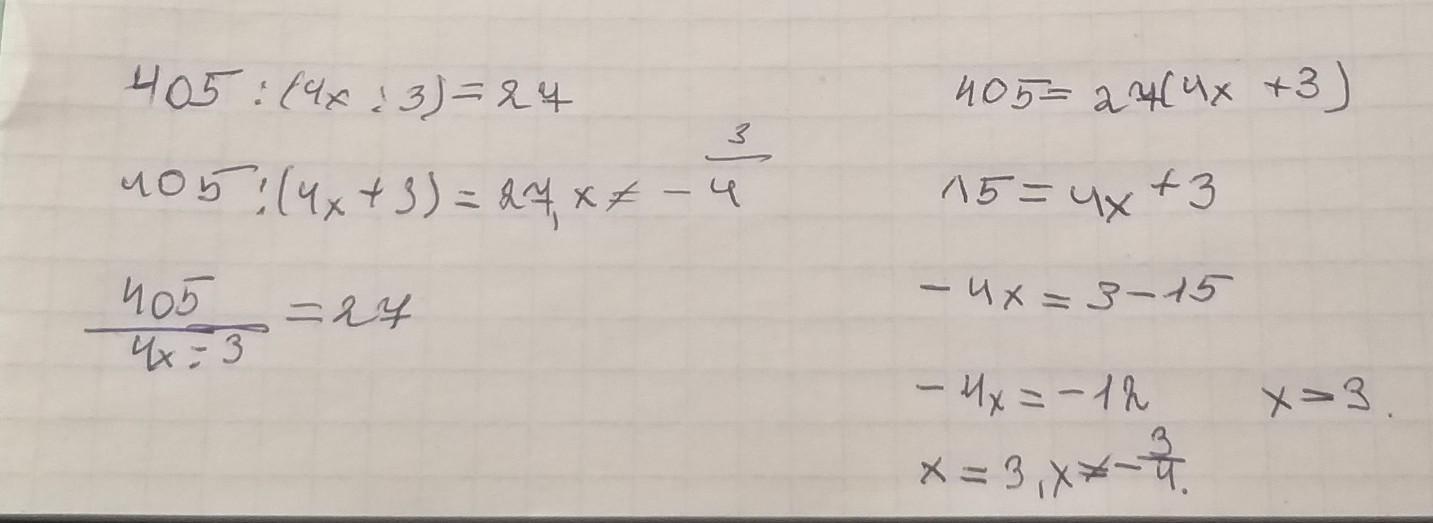 405 : (4x : 3) = 27
405 : (4x + 3) = 27, x ≠ - 3/4
405/(4x = 3) = 27
405 = 27(4x + 3)
15 = 4x + 3
- 4x = 3 - 15
- 4x = - 12 x = 3.
x = 3, x ≠ - 3/4.